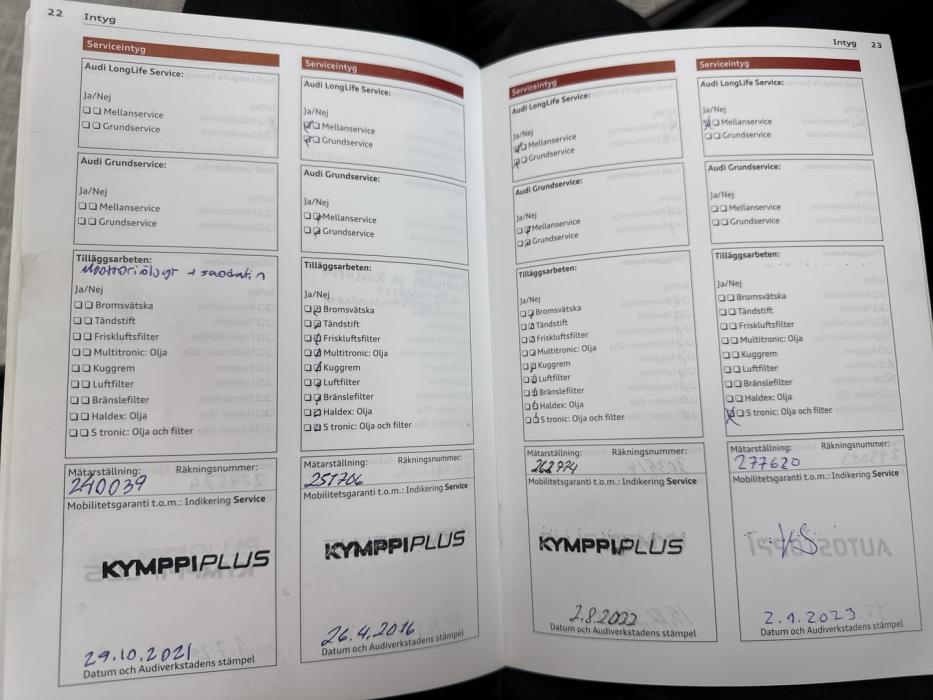 22
Intyg
Serviceintyg
Audi LongLife Service:
Ja/Nej
Mellanservice
Grundservice
Audi Grundservice:
Ja/Nej
Mellanservice
Grundservice
Tilläggsarbeten:
Ja/Nej
Bromsvätska
Tändstift
Friskluftsfilter
Multitronic: Olja
Kuggrem
Luftfilter
Bränslefilter
Haldex: Olja
S tronic: Olja och filter
Mätarställning: Räkningsnummer:
240039
Mobilitetsgaranti t.o.m.: Indikering Service
KYMPPIPLUS
29.10.2021
Datum och Audiverkstadens stämpel
Serviceintyg
Audi LongLife Service:
Ja/Nej
Mellanservice
Grundservice
Audi Grundservice:
Ja/Nej
Mellanservice
Grundservice
Tilläggsarbeten:
Ja/Nej
Bromsvätska
Tändstift
Friskluftsfilter
Multitronic: Olja
Kuggrem
Luftfilter
Bränslefilter
Haldex: Olja
S tronic: Olja och filter
Mätarställning: Räkningsnummer:
251706
Mobilitetsgaranti t.o.m.: Indikering Service
KYMPPIPLUS
26.4.2016
Datum och Audiverkstadens stämpel
Intyg 23
Serviceintyg
Audi LongLife Service:
Ja/Nej
Mellanservice
Grundservice
Audi Grundservice:
Ja/Nej
Mellanservice
Grundservice
Tilläggsarbeten:
Ja/Nej
Bromsvätska
Tändstift
Friskluftsfilter
Multitronic: Olja
Kuggrem
Luftfilter
Bränslefilter
Haldex: Olja
S tronic: Olja och filter
Mätarställning: Räkningsnummer:
262774
Mobilitetsgaranti t.o.m.: Indikering Service
KYMPPIPLUS
2.8.2022
Datum och Audiverkstadens stämpel
Serviceintyg
Audi LongLife Service:
Ja/Nej
Mellanservice
Grundservice
Audi Grundservice:
Ja/Nej
Mellanservice
Grundservice
Tilläggsarbeten:
Ja/Nej
Bromsvätska
Tändstift
Friskluftsfilter
Multitronic: Olja
Kuggrem
Luftfilter
Bränslefilter
Haldex: Olja
S tronic: Olja och filter
Mätarställning: Räkningsnummer:
277620
Mobilitetsgaranti t.o.m.: Indikering Service
2.1.2023
Datum och Audiverkstadens stämpel